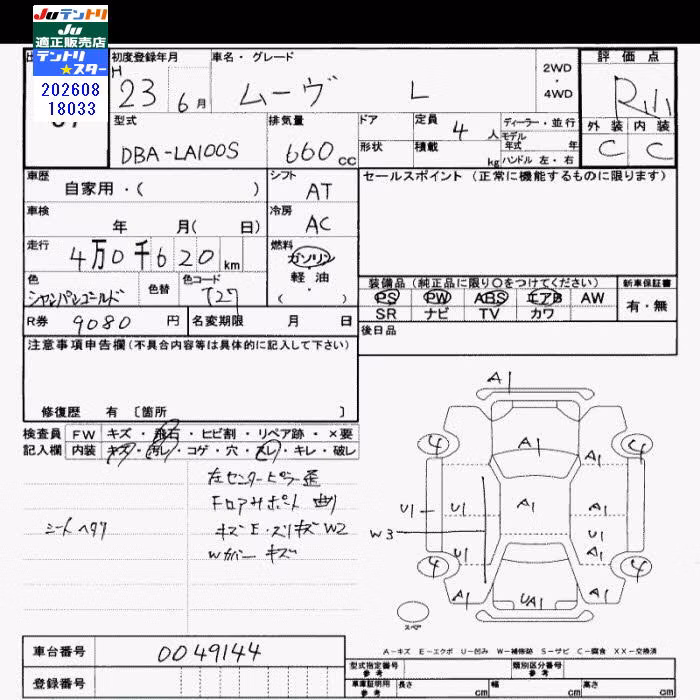 Juテントリ
Ju
適正販売店
テントリ
★スター
202608
18033
初度登録年月
車名・グレード
2WD
・
4WD
評価点
H
23 6月
ムーヴ L
外装 内装
C C
型式
排気量
ドア
定員
4人
ディーラー・並行
モデル
年式 年
DBA-LA100S
660cc
形状
積載
kg
ハンドル 左・右
車歴
自家用・( )
シフト
AT
セールスポイント (正常に機能するものに限ります)
車検
年 月( 日)
冷房
AC
走行
4万0千620km
燃料
ガソリン
・
軽油
・
( )
色
シャンパンゴールド
色替
色コード
T27
装備品 (純正品に限り○をつけてください)
新車保証書
PS PW ABS エアB AW
SR ナビ TV カワ
有・無
R券 9080 円
名変期限 月 日
後日品
注意事項申告欄 (不具合内容等は具体的に記入して下さい)
修復歴 有 [箇所 ]
検査員 FW キズ・飛石・ヒビ割・リペア跡・×要
記入欄 内装 キズ・汚レ・コゲ・穴・スレ・キレ・破レ
左センターピラー歪
Fロアサポート曲り
シートヘタリ
キズE・スリキズW2
Wカバーキズ
A1
4 A1 4
U1 U1 A1 A1
W3
U1 A1
4 4
A1 UA1 A1
スペア
A-キズ E-エクボ U-凹み W-補修跡 S-サビ C-腐食 XX-交換済
車台番号 0049144
登録番号
型式指定番号
参考
類別区分番号
参考
車庫証明用
参考
長さ cm 幅 cm 高さ cm